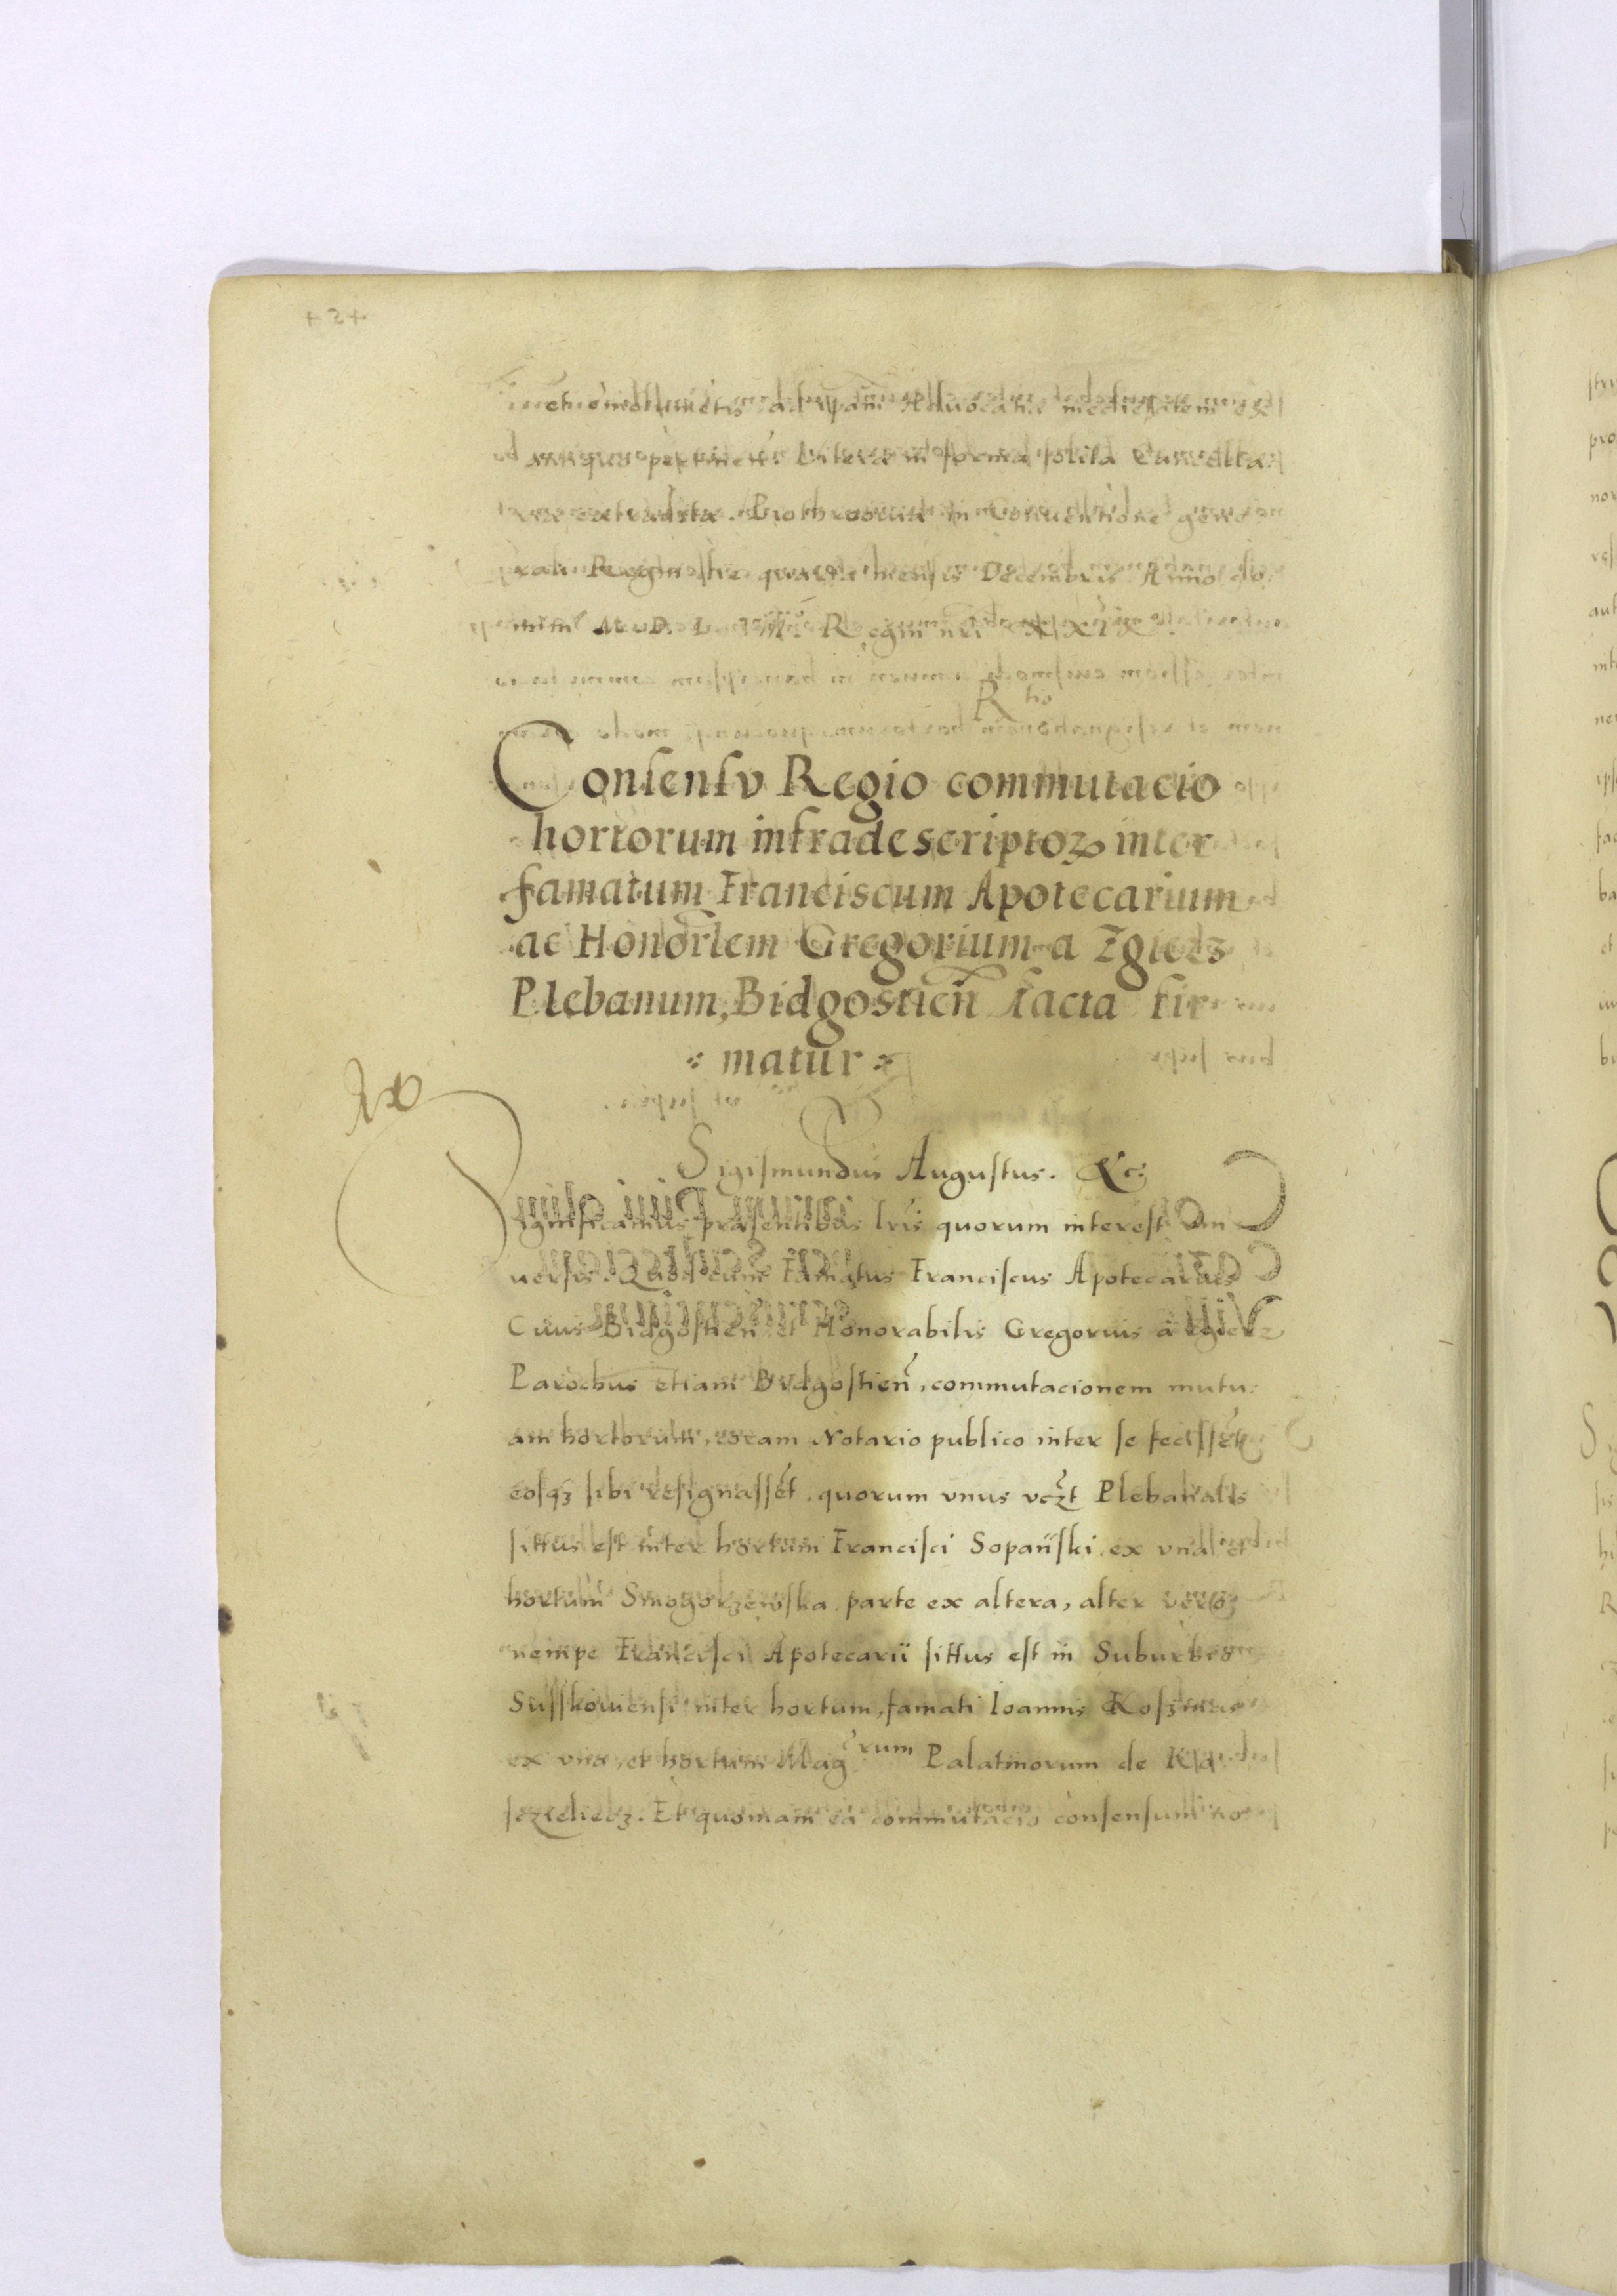 et emolimētis ad ipam Aduocatiæ medietatem ex
antiquo pertineñ. Litera in forma solita Cancellā
riæ extradita. Piotrkouiæ in Conuentione gene
rali Regni die quarta mensis Decembris Anno do
mini M. D. L Regni nrī XXIX
R ho
Consensv Regio commutacio
hortorum infradescriptoꝝ inter
famatum Franciscum Apotecarium
ac Honorlem Gregorium a Zgierz
Plebanum, Bidgostien̄ facta fir
matur
Sigismundus Augustus. &c;
Significamus præsentibus lrīs quorum interest vni
uersis. Quod cum famatus Franciscus Apotecarius
Ciuis Bidgostien̄ et Honorabilis Gregorius à Zgierz
Parochus etiam Bydgostien̄, commutacionem mutu
am hortorum, coram Notario publico inter se fecissēt
eosqȝ sibi resignassēt, quorum vnus vcȝt Plebanalis
sittus est inter hortum Francisci Sopański ex vna et
hortum Smogorzewska parte ex altera, alter vero
nempe Francisci Apotecarii sittus est in Suburbio
Susskouiensi inter hortum, famati Ioannis
ex vna, et hortum Mag̃rum Palatinorum de
Et quoniam ea commutacio consensum no